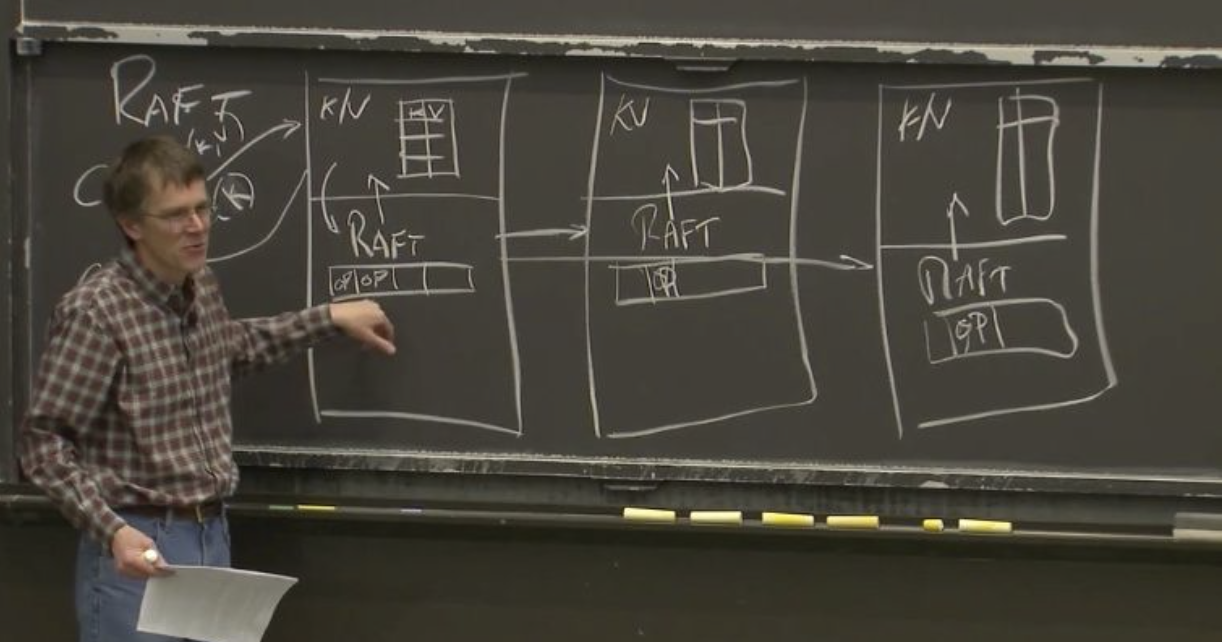 RAFT
C
K
KV
KV
RAFT
OP OP
KV
RAFT
OP
KV
RAFT
OP